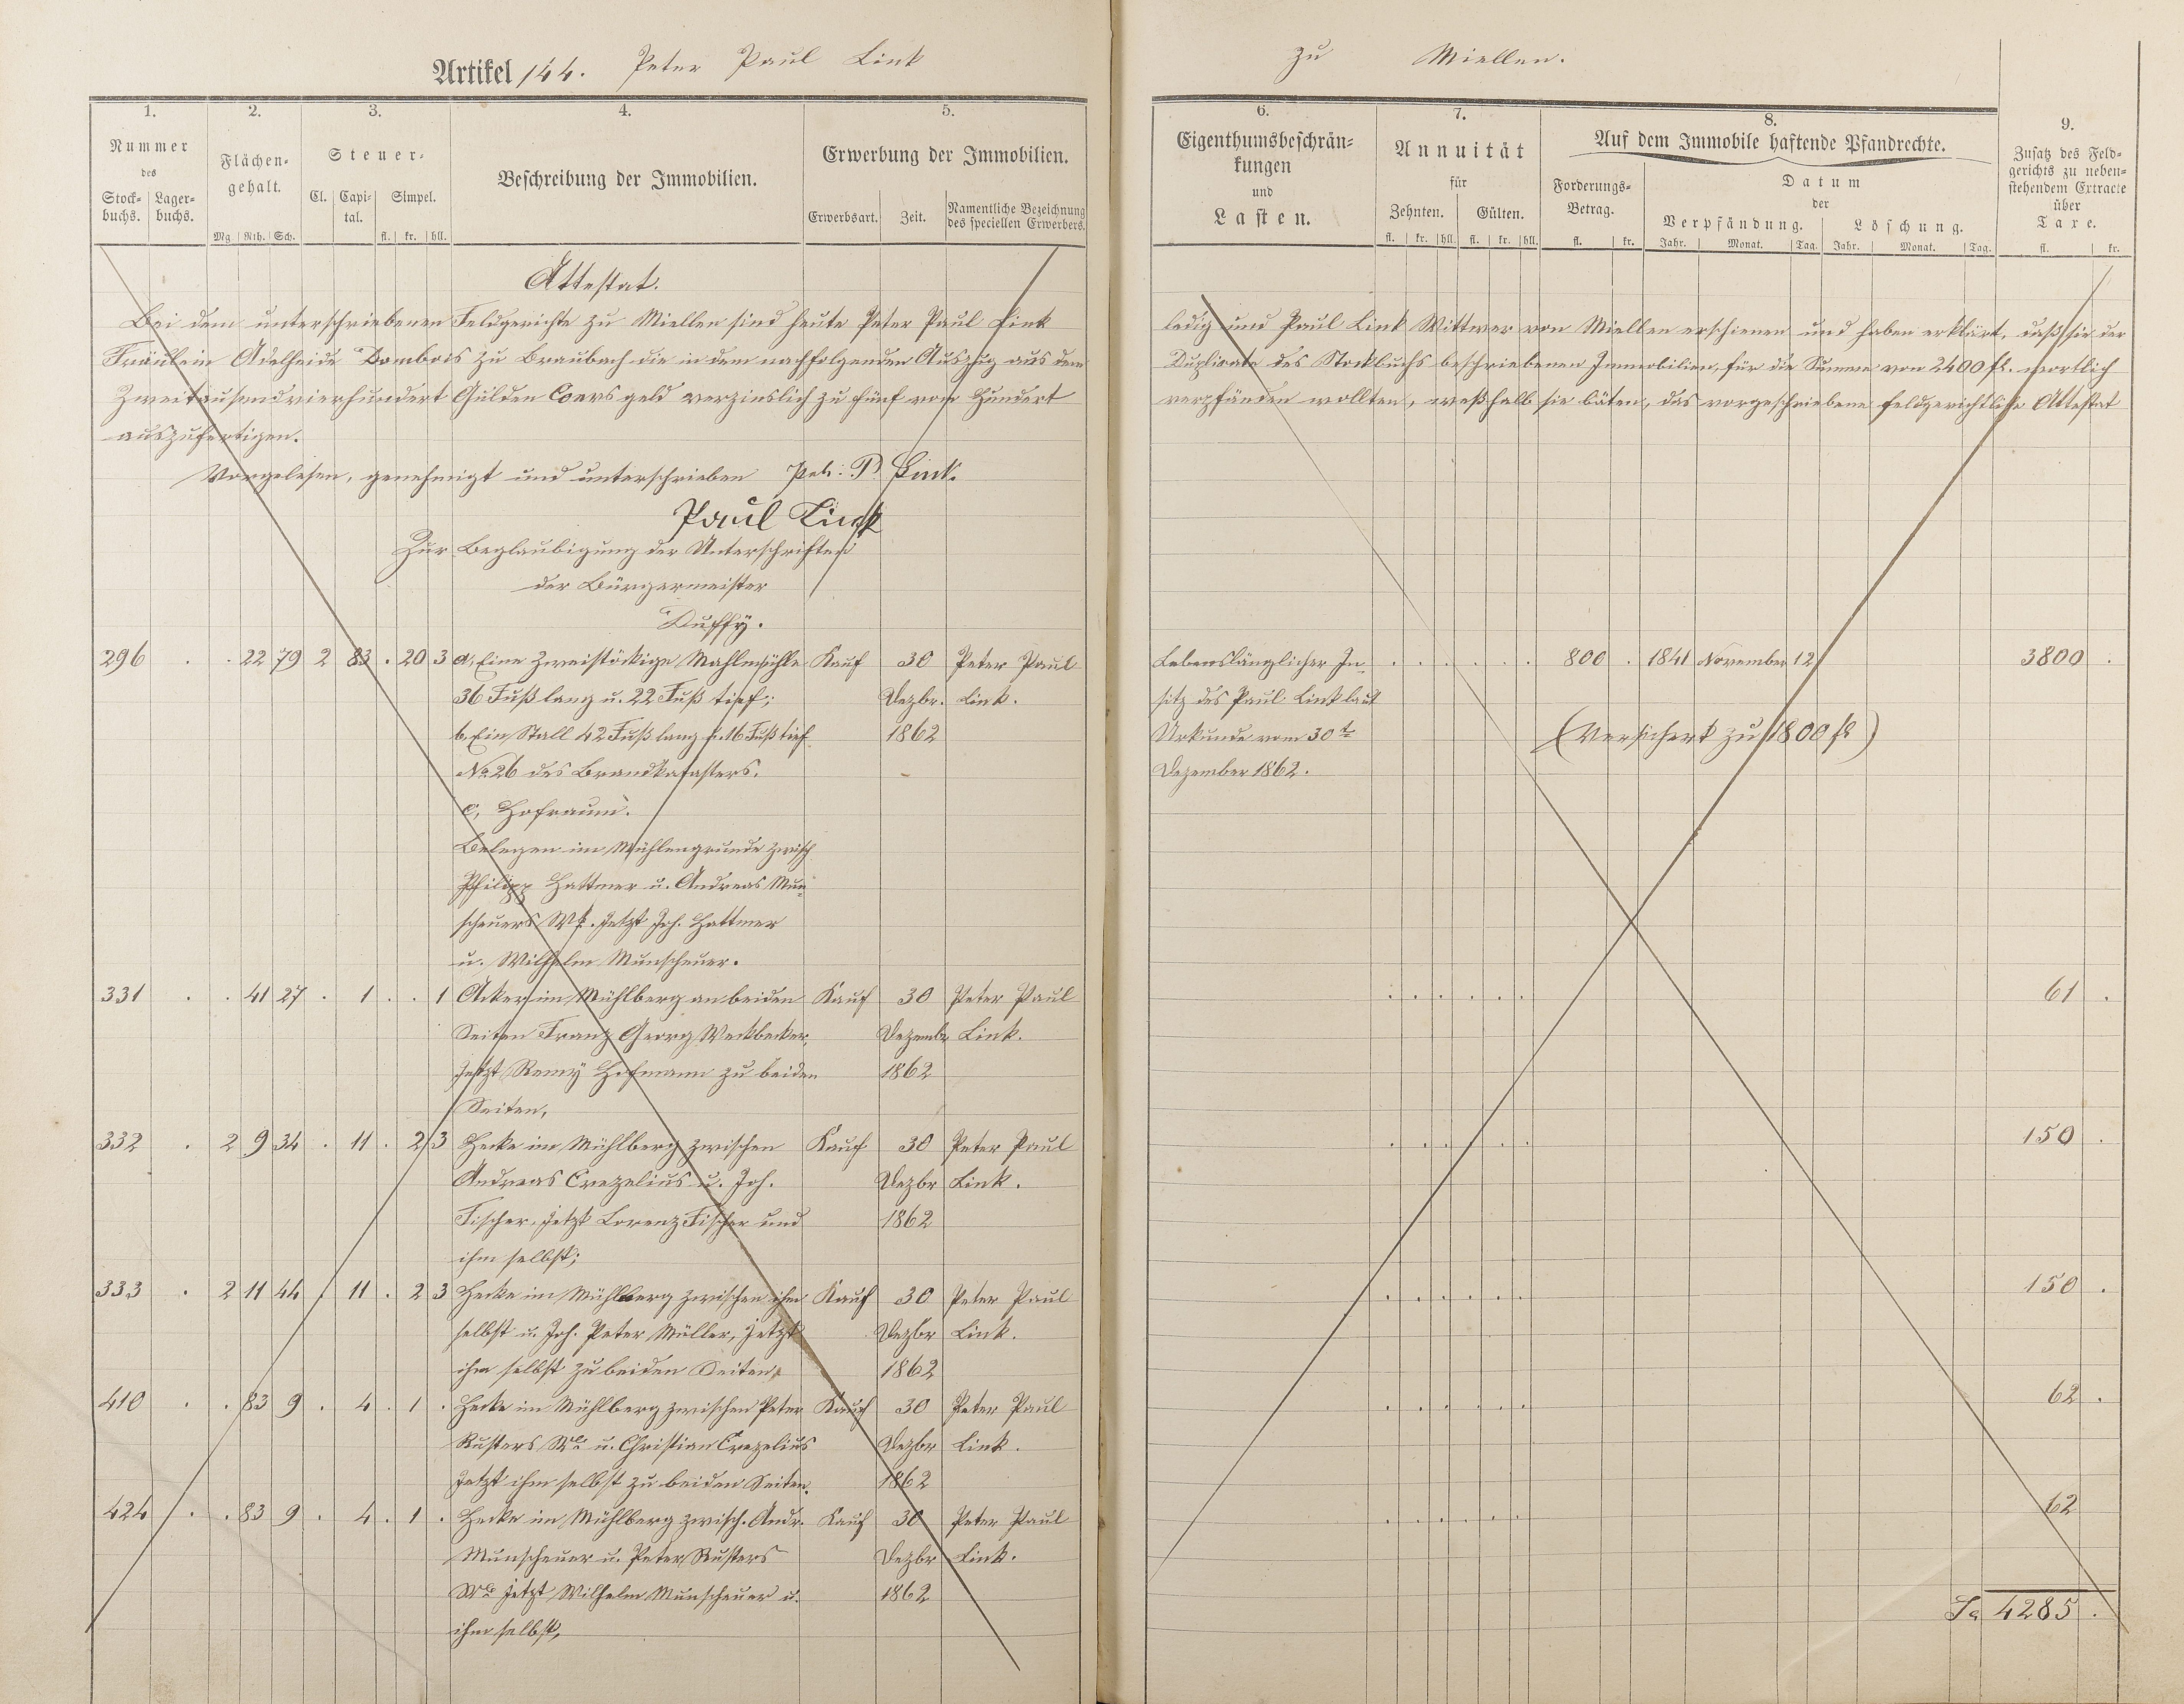 Artikel 144. Peter Paul Link
zu Miellen.
1.
2.
3.
4.
5.
6.
7.
8.
9.
Nummer
des
Stock- buchs.
Lager- buchs.
Flächen-
gehalt.
Mg. Rth. Sch.
Steuer-
Cl. Capi- tal. Simpel.
fl. kr. hll.
Beschreibung der Immobilien.
Erwerbung der Immobilien.
Erwerbsart. Zeit. Namentliche Bezeichnung
des speciellen Erwerbers.
Eigenthumsbeschrän-
kungen
und
Lasten.
Annuität
für
Zehnten. Gülten.
fl. kr. hll. fl. kr. hll.
Auf dem Immobile haftende Pfandrechte.
Forderungs-
Betrag.
fl. kr.
Datum
der
Verpfändung. Löschung.
Jahr. Monat. Tag. Jahr. Monat. Tag.
Zusatz des Feld-
gerichts zu neben-
stehendem Extracte
über
Taxe.
fl. kr.
Attestat.
Bei dem unterschriebenen Feldgerichte zu Miellen sind heute Peter Paul Link
ledig und Paul Link Wittwer von Miellen erschienen und haben erklärt, daß sie der
Fräulein Adelheide Dombois zu Braubach die in dem nachfolgenden Auszug aus dem
Duplicate des Stockbuchs beschriebenen Immobilien, für die Summe von 2400 fl. wortlich
Zweitausendvierhundert Gulden Coursgeld verzinslich zu fünf vom Hundert
verpfänden wollten, weßhalb sie bäten, das vorgeschriebene feldgerichtliche Attestat
auszufertigen.
Vorgelesen, genehmigt und unterschrieben Pet: P. Link.
Paul Link
Zur Beglaubigung der Unterschriften
der Bürgermeister
Duffy.
296 . . 22 79 2 83 . 20 3 a, Eine zweistöckige Mahlmühle Kauf 30 Peter Paul
36 Fuß lang u. 22 Fuß tief; Dezbr. Link.
b, Ein Stall 42 Fuß lang u. 16 Fuß tief 1862
No 26 des Brandkatasters.
c, Hofraum.
Belegen im Mühlengrunde zwisch
Philipp Hattmer u. Andreas Mun-
scheuers Wt. Jetzt Joh. Hattmer
u. Wilhelm Munscheuer.
Lebenslänglicher In- . . . . . . 800 . 1841 November 12 3800 .
sitz des Paul Link laut
Urkunde vom 30te (Versichert zu 1800 fl)
Dezember 1862.
331 . . 41 27 . 1 . . 1 Acker im Mühlberg an beiden Kauf 30 Peter Paul . . . . . . 61 .
Seiten Franz Georg Weckbecker, Dezembr Link.
Jetzt Remy Hofmann zu beiden 1862
Seiten,
332 . 2 9 34 . 11 . 2 3 Hecke im Mühlberg zwischen Kauf 30 Peter Paul . . . . . . 150 .
Andreas Crezelius u. Joh. Dezbr Link.
Fischer, jetzt Lorenz Fischer und 1862
ihm selbst;
333 . 2 11 44 . 11 . 2 3 Hecke im Mühlberg zwischen ihm Kauf 30 Peter Paul . . . . . . 150 .
selbst u. Joh. Peter Müller, jetzt Dezbr Link.
ihm selbst zu beiden Seiten, 1862
410 . . 83 9 . 4 . 1 . Hecke im Mühlberg zwischen Peter Kauf 30 Peter Paul . . . . . . 62 .
Rusters We u. Christian Crezelius Dezbr Link.
Jetzt ihm selbst zu beiden Seiten. 1862
424 . . 83 9 . 4 . 1 . Hecke im Mühlberg zwisch. Andr. Kauf 30 Peter Paul . . . . . . 62
Munscheuer u. Peter Rusters Dezbr Link.
We jetzt Wilhelm Munscheuer u. 1862
ihm selbst,
Sa 4285 .